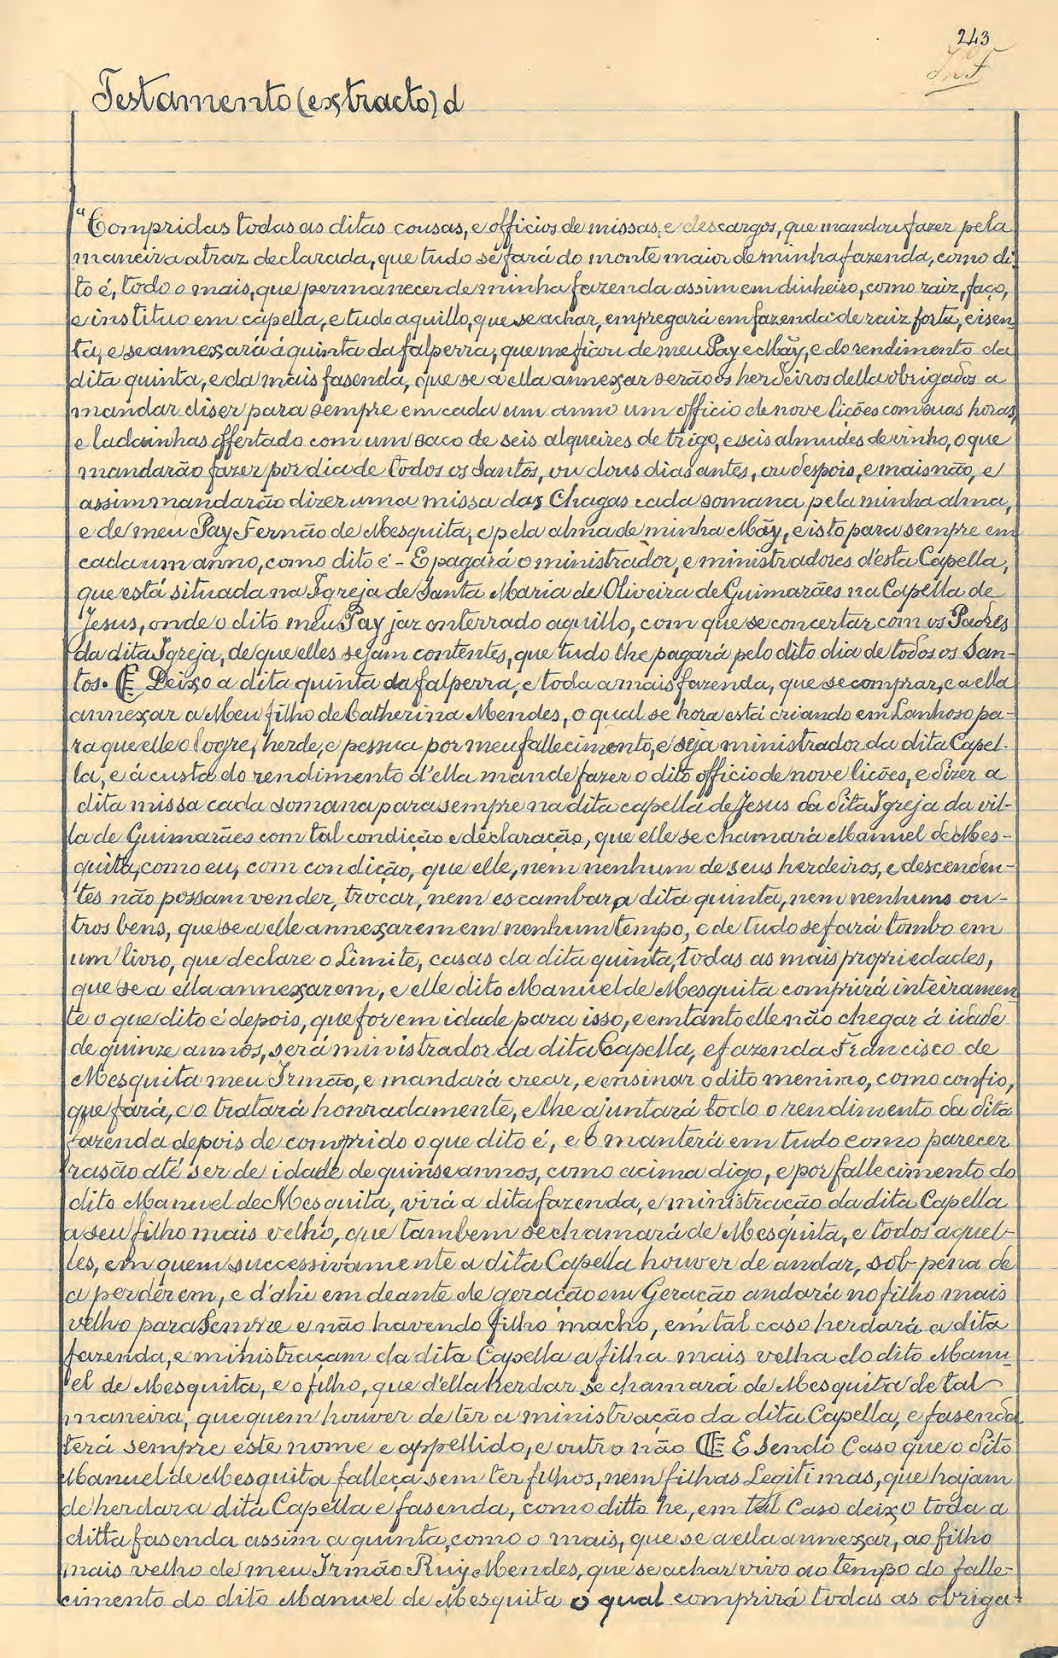 243
Testamento (extracto) d
"Compridas todas as ditas cousas, e officios de missas, e descargos, que mandou fazer pela
maneira atraz declarada, que tudo se fará do monte maior de minha fazenda, como di
to é, todo o mais, que permanecer de minha fazenda assim em dinheiro, como raiz, faço,
e instituo em capella, e tudo aquillo, que se achar, empregará em fazenda de raiz forta, eisen
ta, e se annexará á quinta da falperra, que me ficou de meu Pay e Mãy, e do rendimento da
dita quinta, e da mais fasenda, que se a ella annexar serão os herdeiros della obrigados a
mandar diser para sempre em cada um anno um officio de nove lições com suas horas,
e ladainhas offertado com um saco de seis alqueires de trigo, e seis almudes de vinho, o que
mandarão fazer por dia de todos os Santos, ou dous dias antes, ou despois, e mais não, e
assim mandarão dizer uma missa das Chagas cada somana pela minha alma,
e de meu Pay Fernão de Mesquita, e pela alma de minha Mãy, e isto para sempre em
cada um anno, como dito é - E pagará o ministrador, e ministradores d'esta Capella,
que está situada na Igreja de Santa Maria de Oliveira de Guimarães na Capella de
Jesus, onde o dito meu Pay jaz enterrado aquillo, com que se concertar com os Padres
da dita Igreja, de que elles sejam contentes, que tudo lhe pagará pelo dito dia de todos os San-
tos. Deixo a dita quinta da falperra, e toda a mais fazenda, que se comprar, e a ella
annexar a Meu filho de Catherina Mendes, o qual se hora está criando em Lanhoso pa-
ra que elle o logre, herde, e pessua por meu fallecimento, e seja ministrador da dita Capel-
la, e á custa do rendimento d'ella mande fazer o dito officio de nove lições, e dizer a
dita missa cada somana para sempre na dita capella de Jesus da dita Igreja da vil-
la de Guimarães com tal condição e declaração, que elle se chamará Manuel de Mes-
quita, como eu, com condição, que elle, nem nenhum de seus herdeiros, e descenden-
tes não possam vender, trocar, nem escambar a dita quinta, nem nenhuns ou-
tros bens, que se a elle annexarem em nenhum tempo, e de tudo se fará tombo em
um livro, que declare o Limite, casas da dita quinta, todas as mais propriedades,
que se a ella annexarem, e elle dito Manuel de Mesquita comprirá inteiramen
te o que dito é depois, que for em idade para isso, e emtanto elle não chegar á idade
de quinze annos, será ministrador da dita Capella, e fazenda Francisco de
Mesquita meu Irmão, e mandará crear, e ensinar o dito menimo, como confio,
que fará, e o tratará honradamente, e lhe ajuntará todo o rendimento da dita
fazenda depois de comprido o que dito é, e o manterá em tudo como parecer
rasão até ser de idade de quinse annos, como acima digo, e por fallecimento do
dito Manuel de Mesquita, virá a dita fazenda, e ministração da dita Capella
a seu filho mais velho, que tambem se chamará de Mesquita, e todos aquel-
les, em quem successivamente a dita Capella houver de andar, sob pena de
a perderem, e d'ahi em deante de geração em Geração andará no filho mais
velho para Sempre e não havendo filho macho, em tal caso herdará a dita
fazenda, e ministraçam da dita Capella a filha mais velha do dito Manu-
el de Mesquita, e o filho, que d'ella herdar se chamará de Mesquita de tal
maneira, que quem houver de ter a ministração da dita Capella, e fasenda
terá sempre este nome e appellido, e outro não E Sendo Caso que o dito
Manuel de Mesquita falleça sem ter filhos, nem filhas Legitimas, que hajam
de herdar a dita Capella e fasenda, como ditto he, em tal Caso deixo toda a
ditta fasenda assim a quinta, como o mais, que se a ella annexar, ao filho
mais velho de meu Irmão Ruy Mendes, que se achar vivo ao tempo do falle-
cimento do dito Manuel de Mesquita o qual comprirá todas as obriga-